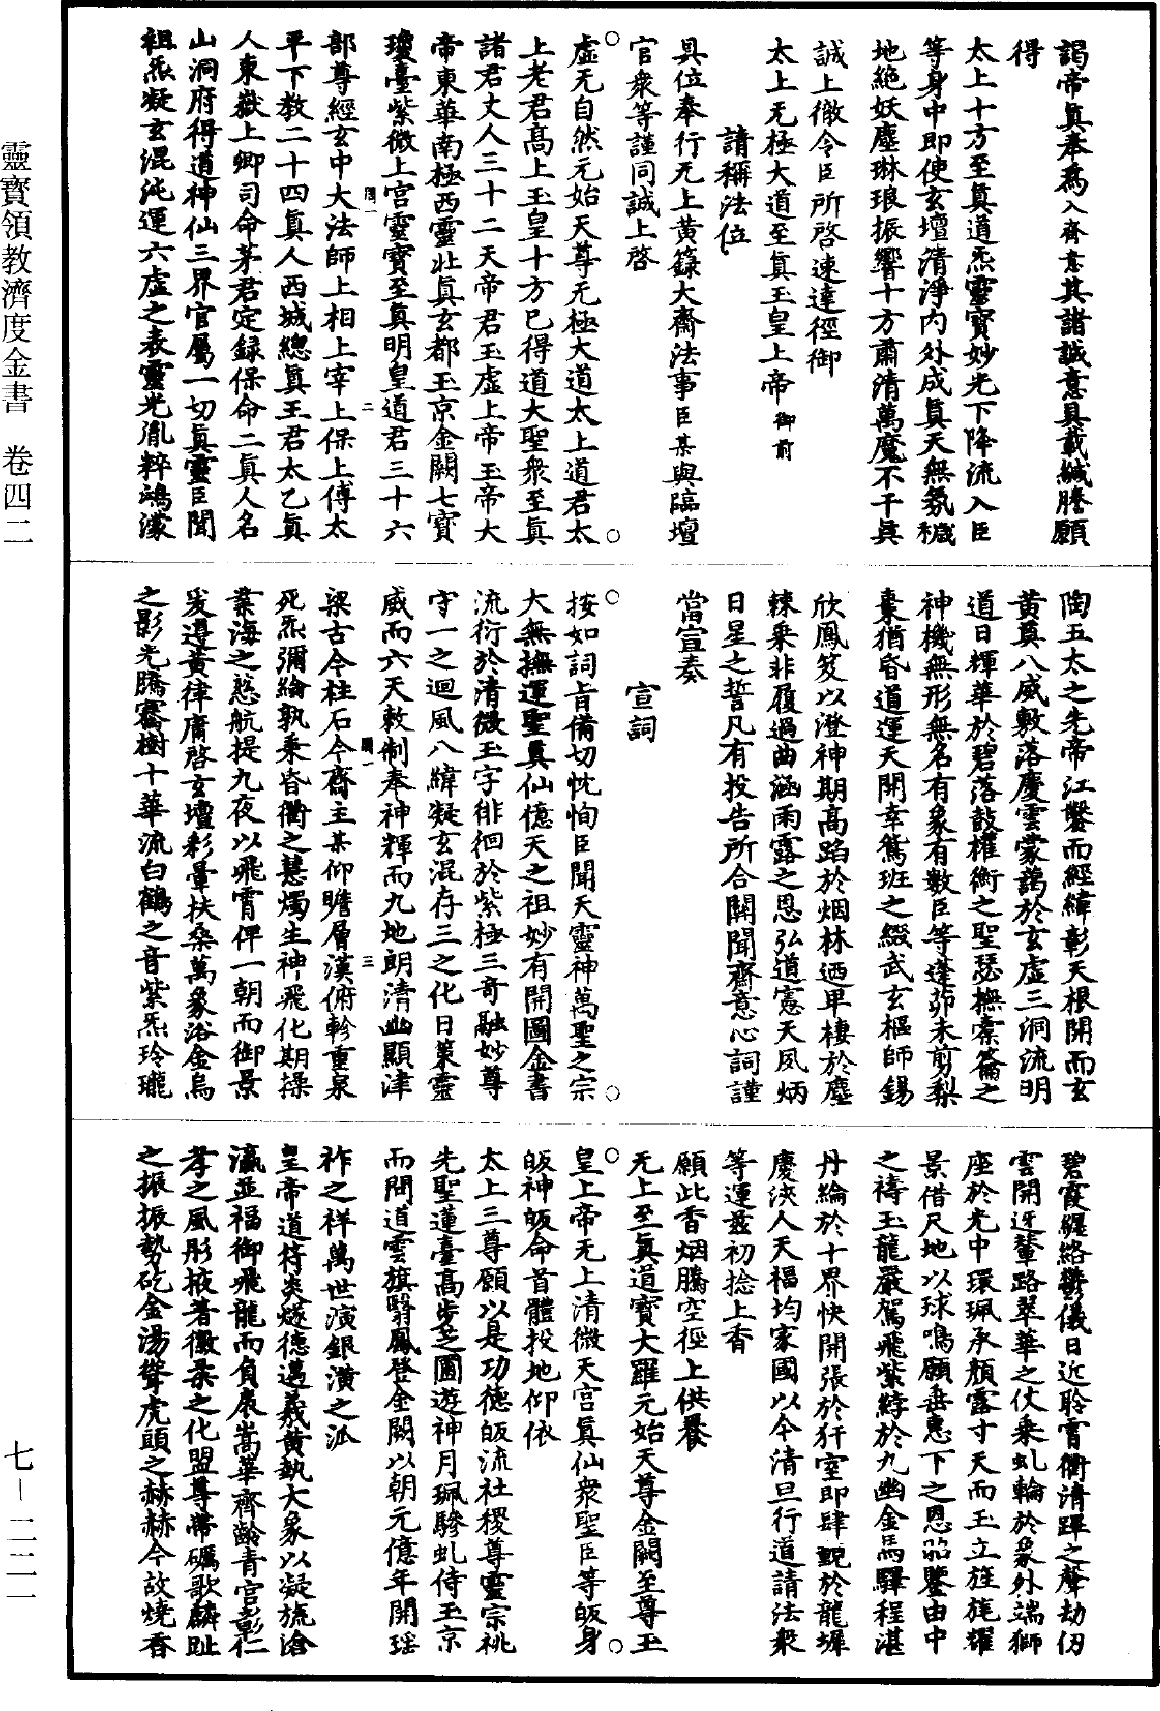 靈寶領教濟度金書 卷四二
七-二二一
謁帝真奉為入齋意其諸誠意具載緘謄願
得
太上十方至真道炁靈寶妙光下降流入臣
等身中即使玄壇清淨內外成真天無氛穢
地絕妖塵琳琅振響十方肅清萬魔不干真
誠上徹令臣所啓速達徑御
太上无極大道至真玉皇上帝御前
請稱法位
具位奉行无上黃籙大齋法事臣某與臨壇
官衆等謹同誠上啓
虛无自然元始天尊无極大道太上道君太
上老君高上玉皇十方已得道大聖衆至真
諸君丈人三十二天帝君玉虛上帝玉帝大
帝東華南極西靈北真玄都玉京金闕七寶
瓊臺紫微上宮靈寶至真明皇道君三十六
部尊經玄中大法師上相上宰上保上傅太
平下教二十四真人西城總真王君太乙真
人東嶽上卿司命茅君定録保命二真人名
山洞府得道神仙三界官屬一切真靈臣聞
祖炁凝玄混沌運六虛之表靈光胤粹鴻濛
陶五太之先帝江鑿而經緯彰天根開而玄
黃奠八威敷落慶雲蒙藹於玄虛三洞流明
道日輝華於碧落鼓權衡之聖瑟撫橐籥之
神機無形無名有象有數臣等蓬茆未剪梨
棗猶昏道運天開幸篤班之綴武玄樞師錫
欣鳳笈以澄神期高蹈於烟林迺卑棲於塵
竦乗非履過曲涵雨露之恩弘道憲天夙炳
日星之誓凡有投告所合關聞齋意心詞謹
當宣奏
宣詞
按如詞旨備切忱恂臣聞天靈神萬聖之宗
大無撫運聖真仙億天之祖妙有開圖金書
流衍於清微玉字徘徊於紫極三奇融妙尊
守一之迴風八緯凝玄混存三之化日策靈
威而六天敕制奉神輝而九地朗清幽顯津
梁古今柱石今齋主某仰瞻層漢俯軫重泉
死炁彌綸孰乗昏衢之慧燭生神飛化期操
業海之慈航提九夜以飛霄俾一朝而御景
爰遵黃律庸啓玄壇彩暈扶桑萬象浴金烏
之影光騰騫樹十華流白鶴之音紫炁玲瓏
碧霞纏絡鬱儀日近聆霄衢清蹕之聲劫仞
雲開迓輦路翠華之仗乗虬輪於象外端獅
座於光中環珮承顏露寸天而玉立旌旄耀
景借尺地以球鳴願垂惠下之恩詔鑒由中
之禱玉龍嚴駕飛紫綍於九幽金馬驛程湛
丹綸於十界快開張於犴室即肆覬於龍墀
慶浹人天福均家國以今清旦行道請法衆
等運茲初捻上香
願此香烟騰空徑上供養
无上至真道寶大羅元始天尊金闕至尊玉
皇上帝无上清微天宮真仙衆聖臣等皈身
皈神皈命首體投地仰依
太上三尊願以是功德皈流社稷尊靈宗祧
先聖蓮臺高步乏圃遊神月珮驂虬侍玉京
而問道雲旗翳鳳登金闕以朝元億年開瑤
祚之祥萬世演銀潢之派
皇帝道符炎燧德邁羲黃執大象以凝旒滄
瀛並福御飛龍而負扆嵩華齊齡青宮彰仁
孝之風彤掖著徽柔之化盟尊帶礪歌麟趾
之振振勢矻金湯聳虎頭之赫赫今故燒香